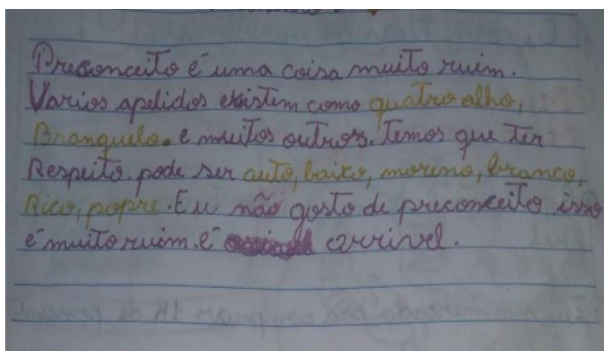 Preconceito é uma coisa muito ruim.
Varios apelidos existem como quatro alho,
Branquelo. e muitos outros. Temos que ter
Respeito. pode ser auto, baixo, moreno, branco,
Rico, popre. Eu não gosto de preconceito isso
é muito ruim. é orrivel.